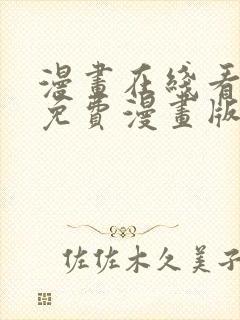 漫畫在綫看
免費漫畫版
佐佐木久美子